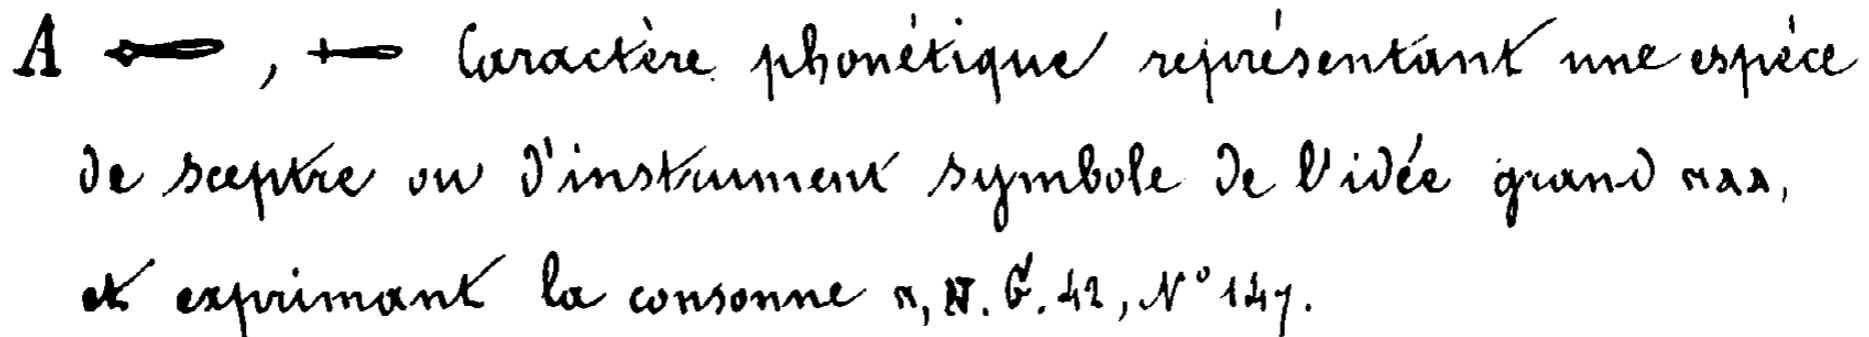 A , Caractère phonétique représentant une espéce
de sceptre ou d'instrument symbole de l'idée grand ⲛⲁⲁ,
et exprimant la consonne ⲛ, N. G. 42, N° 147.